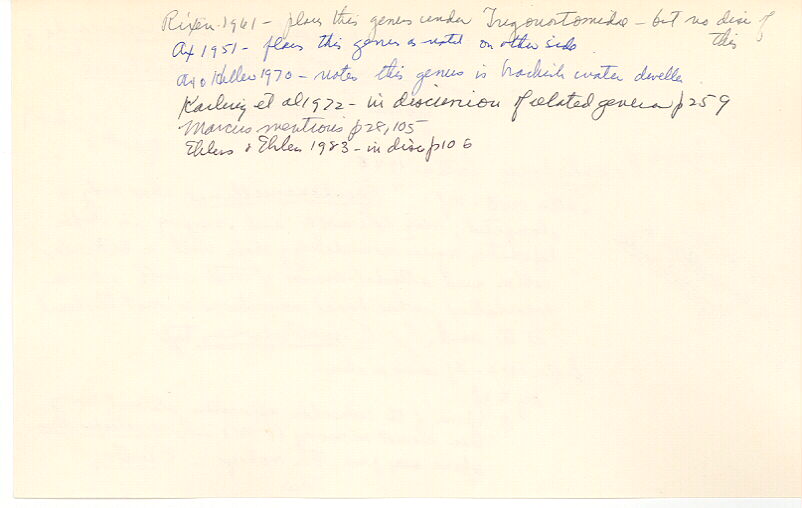 Rixen 1961 - places this genus under Trigonostomidae - but no disc of
this
Ax 1951 - places this genus as noted on other side
Ax & Heller 1970 - notes this genus is brackish water dweller
Karling et al 1972 - in discussion of related genera p259
Marcus mentions p28, 105
Ehlers & Ehlers 1983 - in disc p106